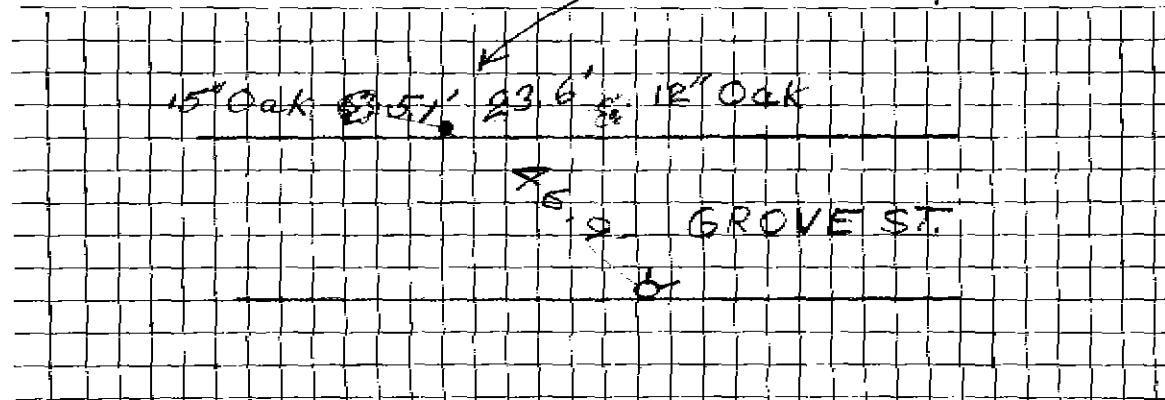 15" Oak 51' 23.6' 12" Oak
GROVE ST.